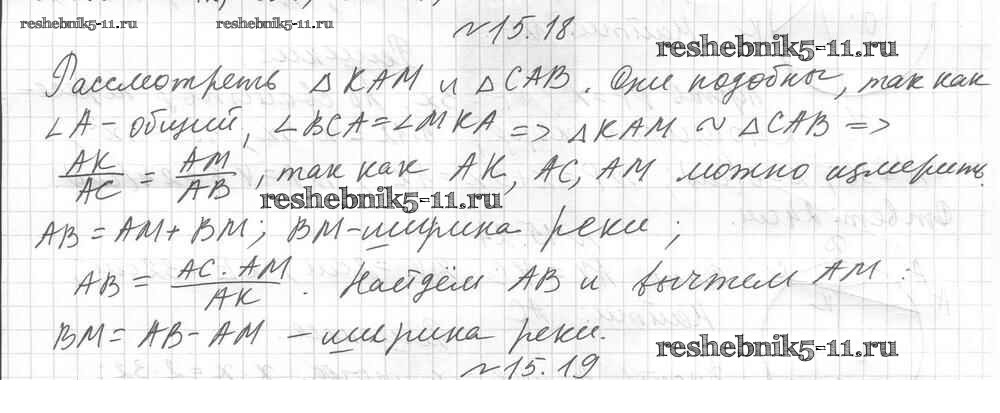 reshebnik5-11.ru
reshebnik5-11.ru
№15.18
reshebnik5-11.ru
Рассмотреть △KAM и △CAB. Они подобны, так как
∠A - общий, ∠BCA = ∠MKA => △KAM ~ △CAB =>
AK/AC = AM/AB, так как AK, AC, AM можно измерить.
reshebnik5-11.ru
AB = AM + BM; BM - ширина реки;
AB = AC · AM/AK. Найдём AB и вычтем AM:
BM = AB - AM - ширина реки.
reshebnik5-11.ru
№15.19